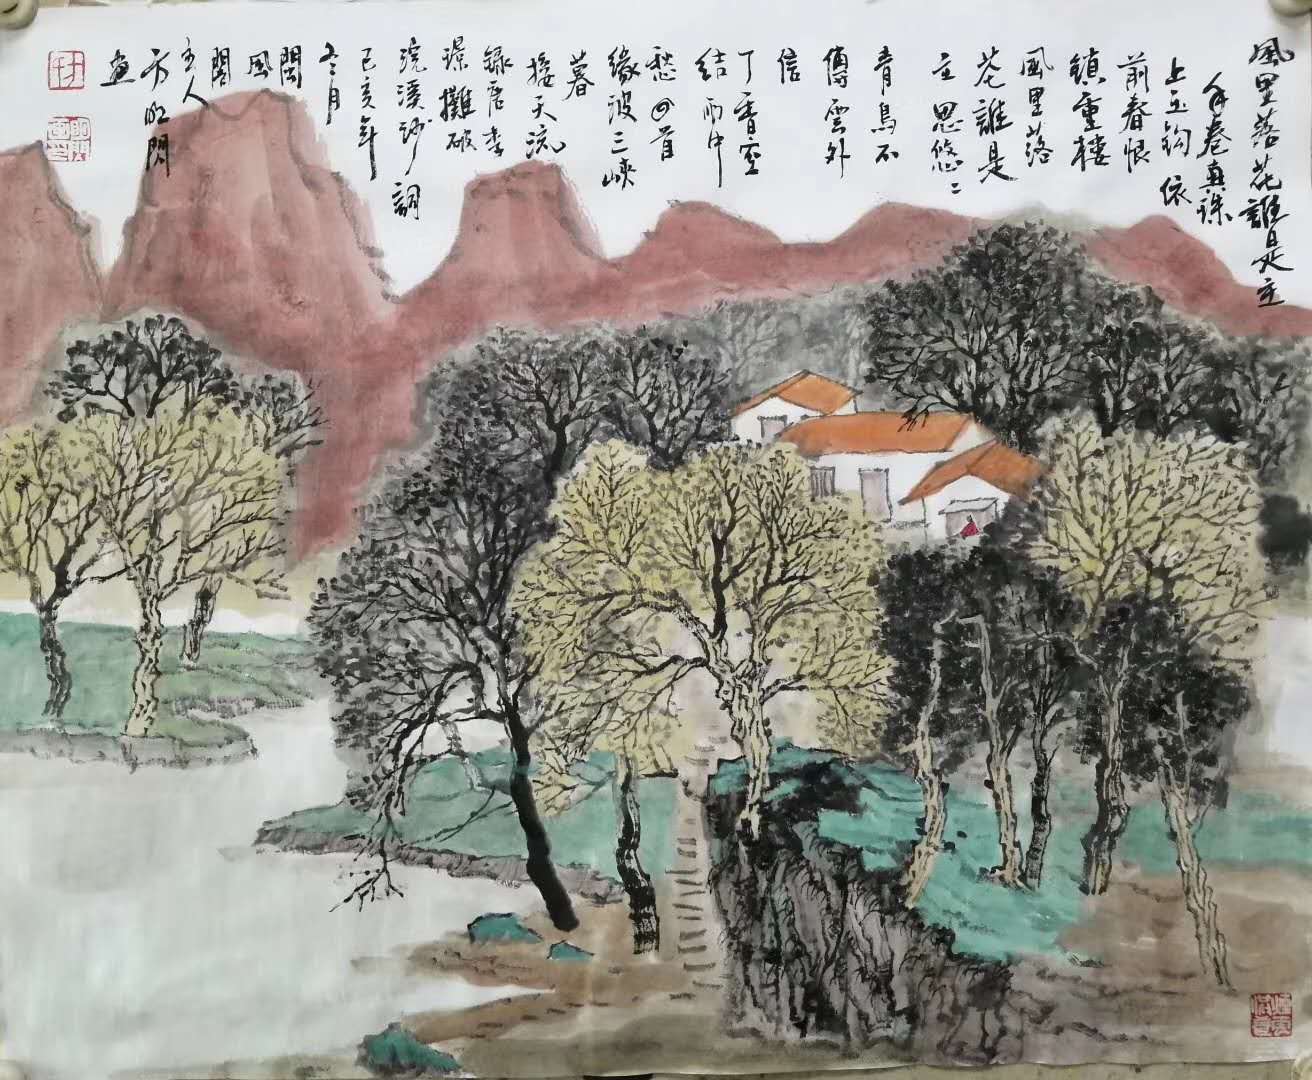 風里落花誰是主
手卷真珠
上玉鈎依
前春恨
鎖重樓
風里落
花誰是
主思悠二
青鳥不
傳雲外
信
丁香空
結雨中
愁回首
綠波三峽
暮
接天流
錄唐李
璟攤破
浣溪沙詞
己亥年
冬月
閩
風
閣
主人
方
畫